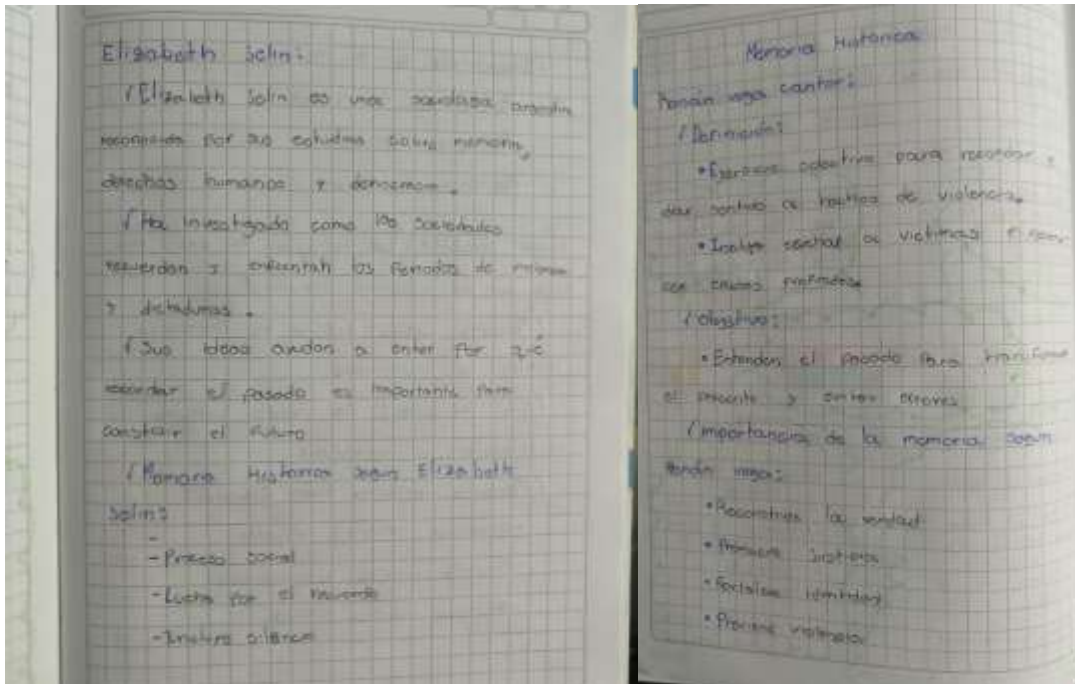 Elizabeth Jelin:
Elizabeth Jelin es una socióloga argentin
reconocida por sus estudios sobre memoria,
derechos humanos y
Ha investigado como las sociedades
recuerdan y enfrentan los periodos de
y dictaduras.
Sus ideas andan a enter por qué
recordar el pasado es importante para
construir el futuro
Memoria Historica segun Elizabeth
Jelin:
- Proceso social
- Lucha por el recuerdo
- Involucra silencio
Memoria Historica
Renán vega cantor:
Definición:
• Ejercicio colectivo para recordar y
dar sentido a hechos de violencia.
• Incluye escuchar a victimas
con causas profundas
Objetivo:
• Entender el pasado para transformar
el presente y evitar errores
Importancia de la memoria segun
Renán vega:
• Reconstruye la verdad
• Promueve justicia
• Fortalece identidad
• Previene violencia